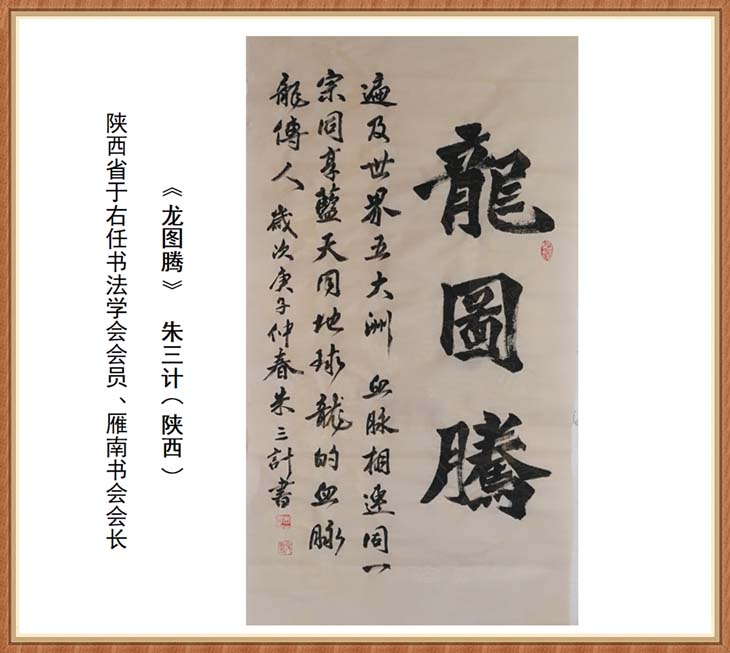 龍圖騰
遍及世界五大洲 血脉相連同一
宗同享藍天同地球龍的血脉
龍傳人歲次庚子仲春朱三計書
《龙图腾》 朱三计(陕西)
陕西省于右任书法学会会员、雁南书会会长